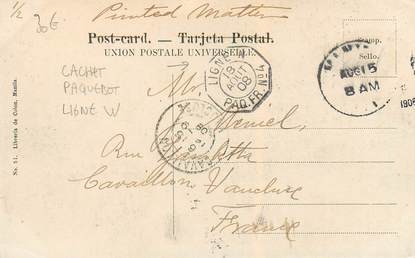 1/2 30€ Printed Matter
Post-card. — Tarjeta Postal.
UNION POSTALE UNIVERSELLE.
Stamp.
Sello.
CACHET
PAQUEBOT
LIGNE W
LIGNE
18
AOUT
08
PAQ. FR. No 4
AUG 15
8 AM
1908
M.
Miniel
Rue
Cavaillon Vaucluse
France
CAVAILLON
No. 51. Libreria de Colon, Manila.